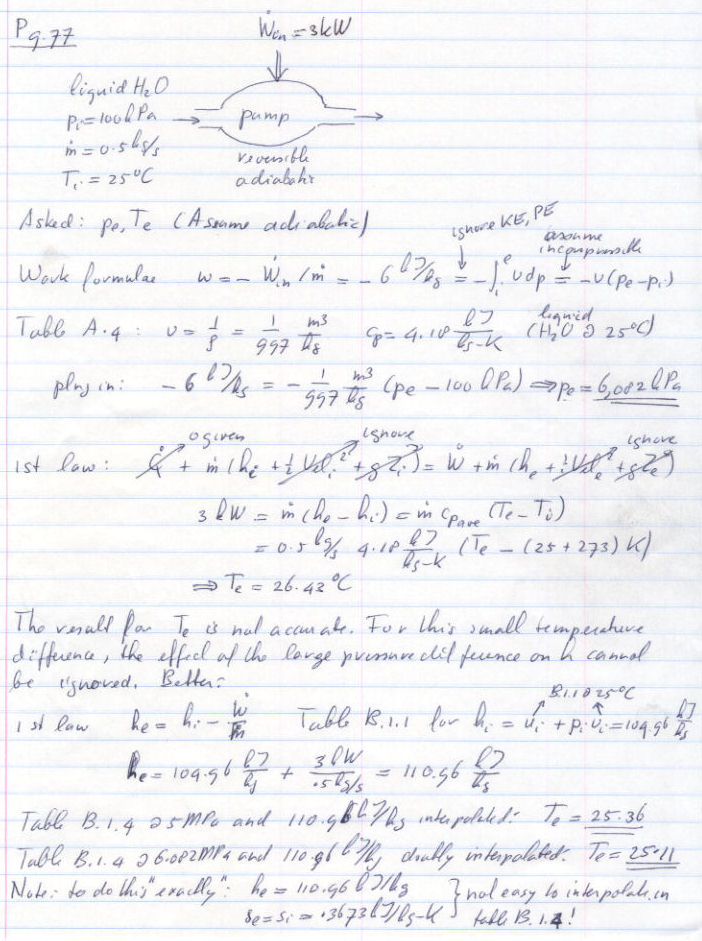 P 9.77
Ẇin = 3kW
liquid H₂O
Pi = 100 kPa
ṁ = 0.5 kg/s
Ti = 25°C
pump
reversible
adiabatic
Asked: pe, Te (Assume adiabatic)
ignore KE, PE
assume incompressible
Work formulae w = - Ẇin / ṁ = - 6 kJ/kg = - ∫ᵢᵉ υ dp = - υ(pe - pi)
Table A.4 : υ = 1/ρ = 1/997 m³/kg cp = 4.18 kJ/kg-K (liquid H₂O @ 25°C)
plug in: - 6 kJ/kg = - 1/997 m³/kg (pe - 100 kPa) ⇒ pe = 6,082 kPa
0 given ignore ignore
1st law: Q̇ + ṁ (hi + ½ Veli² + gZi) = Ẇ + ṁ (he + ½ Vele² + gZe)
3 kW = ṁ (he - hi) = ṁ cp ave (Te - Ti)
= 0.5 kg/s 4.18 kJ/kg-K (Te - (25 + 273) K)
⇒ Te = 26.43 °C
The result for Te is not accurate. For this small temperature
difference, the effect of the large pressure difference on h cannot
be ignored. Better:
B.1.1 @ 25°C
1st law he = hi - Ẇ/ṁ Table B.1.1 for hi = ui + pi υi = 104.96 kJ/kg
he = 104.96 kJ/kg + 3 kW/.5 kg/s = 110.96 kJ/kg
Table B.1.4 @ 5 MPa and 110.96 kJ/kg interpolated: Te = 25.36
Table B.1.4 @ 6.082 MPa and 110.96 kJ/kg doubly interpolated: Te = 25.11
Note: to do this "exactly": he = 110.96 kJ/kg } not easy to interpolate in
se = si = .3673 kJ/kg-K table B.1.4!